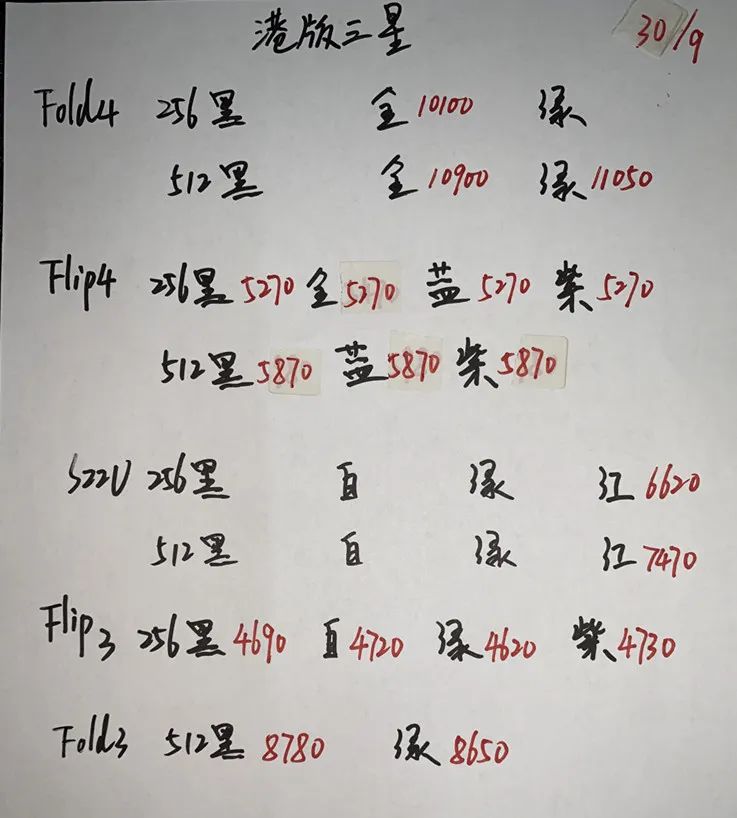 港版三星 30/9
Fold4 256黑 金10100 绿
512黑 金10900 绿11050
Flip4 256黑5270 金5270 蓝5270 紫5270
512黑5870 蓝5870 紫5870
S22U 256黑 白 绿 红6620
512黑 白 绿 红7470
Flip3 256黑4690 白4720 绿4620 紫4730
Fold3 512黑8780 绿8650